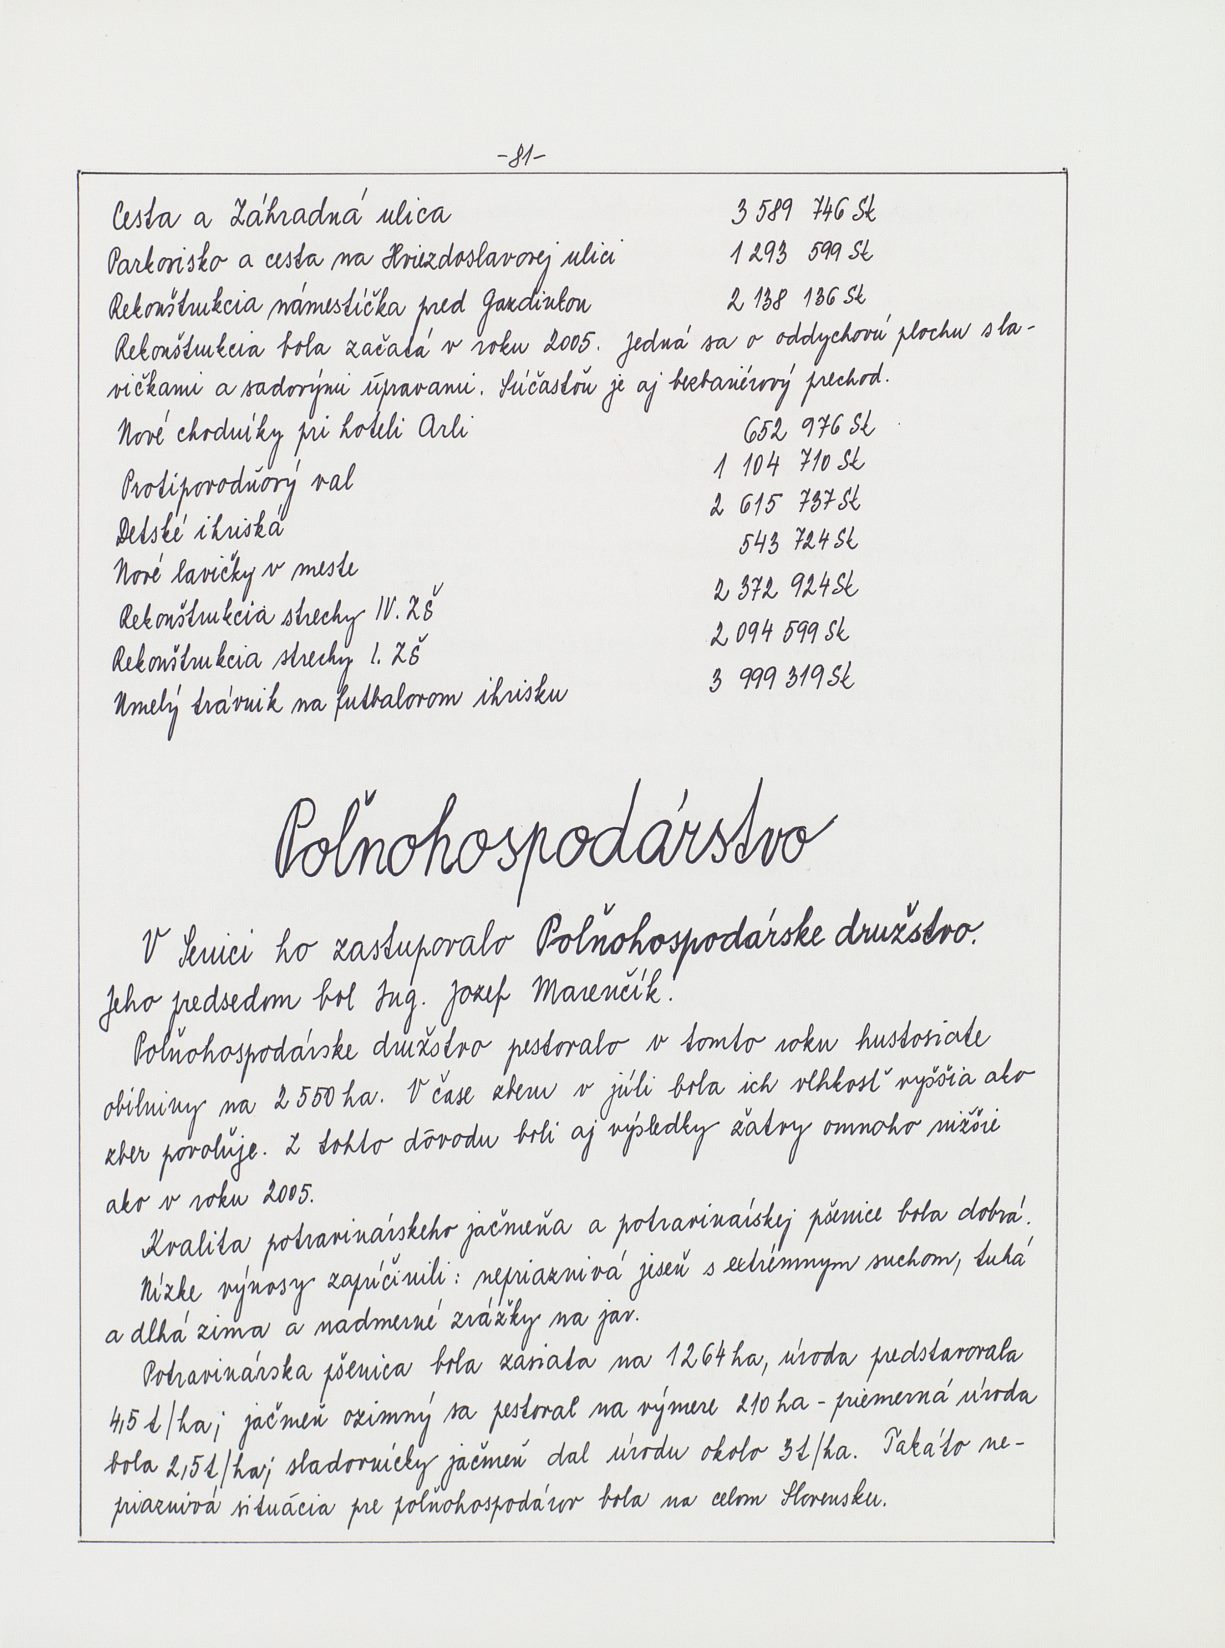 -81-
Cesta a Záhradná ulica 3 589 746 Sk
Parkovisko a cesta na Hviezdoslavovej ulici 1 293 599 Sk
Rekonštrukcia námestíčka pred Gazdinkou 2 138 136 Sk
Rekonštrukcia bola začatá v roku 2005. Jedná sa o oddychovú plochu s la-
vičkami a sadovými úpravami. Súčasťou je aj bezbariérový prechod.
Nové chodníky pri hoteli Arli 652 976 Sk
Protipovodňový val 1 104 710 Sk
Detské ihriská 2 615 737 Sk
Nové lavičky v meste 543 724 Sk
Rekonštrukcia strechy IV. ZŠ 2 372 924 Sk
Rekonštrukcia strechy I. ZŠ 2 094 599 Sk
Umelý trávnik na futbalovom ihrisku 3 999 319 Sk
Poľnohospodárstvo
V Senici ho zastupovalo Poľnohospodárske družstvo.
Jeho predsedom bol Ing. Jozef Marenčík.
Poľnohospodárske družstvo pestovalo v tomto roku hustosiate
obilniny na 2 550 ha. V čase zberu v júli bola ich vlhkosť vyššia ako
zber povoľuje. Z tohto dôvodu boli aj výsledky žatvy omnoho nižšie
ako v roku 2005.
Kvalita potravinárskeho jačmeňa a potravinárskej pšenice bola dobrá.
Nízke výnosy zapríčinili: nepriaznivá jeseň s extrémnym suchom, tuhá
a dlhá zima a nadmerné zrážky na jar.
Potravinárska pšenica bola zasiata na 1264 ha, úroda predstavovala
4,5 t/ha; jačmeň ozimný sa pestoval na výmere 210 ha - priemerná úroda
bola 2,5 t/ha; sladovnícky jačmeň dal úrodu okolo 3 t/ha. Takáto ne-
priaznivá situácia pre poľnohospodárov bola na celom Slovensku.